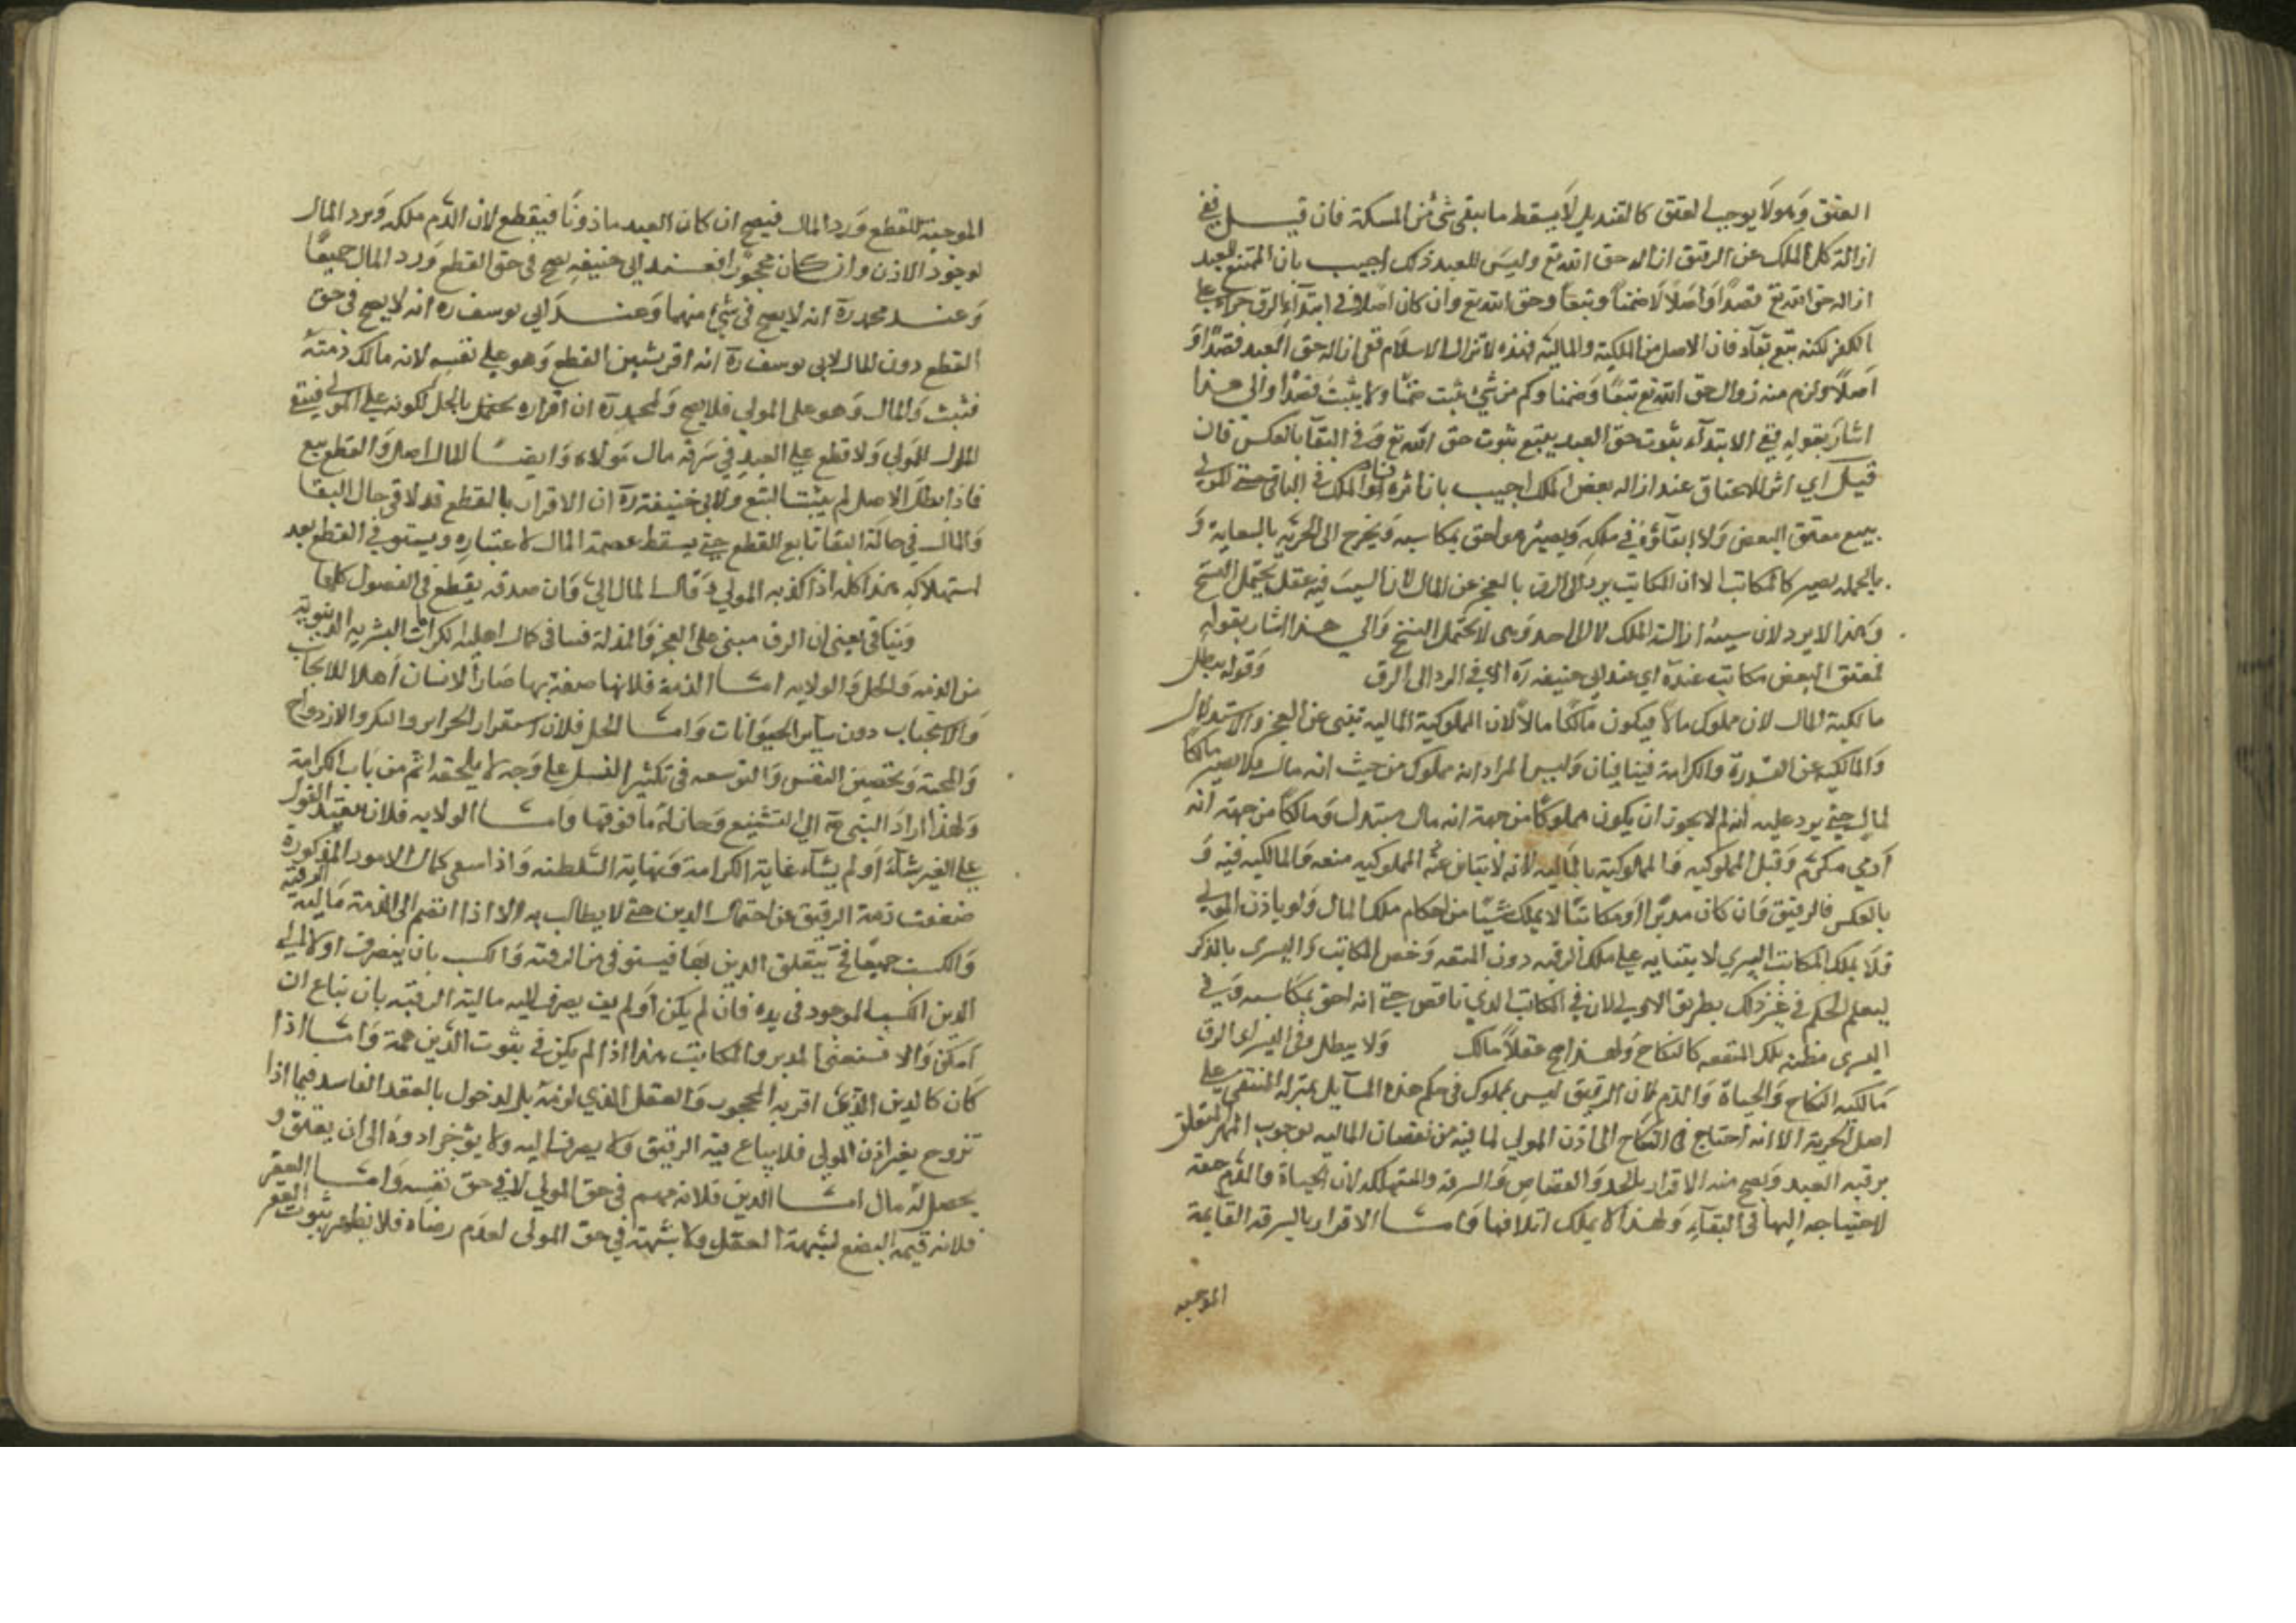 العتق وهو لا يوجب العتق كالقنديل لا يسقط ما بقي شئ من المسكة فان قيل ففي
ازالة كل الملك عن الرقيق ازاله حق الله تع وليس للعبد ذلك اجيب بان الممتنع للعبد
ازاله حق الله تع قصدًا واصلًا لا ضمنًا وتبعًا وحق الله تع وان كان اصلا في ابتدآء الرق جزآء على
الكفر لكنه تبع بقآء فان الاصل من الملكية والمالية فهذه لا تزال الاسلام ففي ازاله حق العبد قصدًا و
اصلًا ولزم منه زوال حق الله تع تبعًا وضمنا وكم من شئ يثبت ضمنًا ولا يثبت قصدًا والى هذا
اشار بقوله ففي الابتدآء بثوت حق العبد يتبع ثبوت حق الله تع وفي البقآ بالعكس فان
قيل اي اثر للاعتاق عند ازاله بعض الملك اجيب بان اثره فساد الملك في الباقي حتى للمولى
بيع معتق البعض ولا ابقآؤه في ملكه ويصير هو احق بمكاسبه ويخرج الى الحرية بالسعاية و
بالجمله يصير كالمكاتب الا ان المكاتب يرد الى الرق بالعجز عن المال لان السبب فيه عقل يحتمل الفسخ
وهذا لا يرد لان سببه ازالة الملك لا الى احد وهي لا يحتمل الفسخ والي هذا اشار بقوله
فمعتق البعض مكاتب عنده اي عند ابي حنيفه ره الا في الرد الى الرق وقوله يبطل
مالكية المال لان مملوك مالا فيكون مالكًا مالًا لان المملوكية المالية تنبى عن العجز والابتذال
والمالكيه عن القدرة والكرامة فيتنافيان وليس المراد انه مملوك من حيث انه مال فلا يصير مالكًا
لمالٍ حتى يرد عليه انه لم لا يجوز ان يكون مملوكًا من جهة انه مال مبتذل ومالكًا من جهة انه
آدمي مكرم وقبل المملوكيه فالمملوكية بالمالية لانه المملوكيه منعه والمالكيه فيه و
بالعكس فالرقيق وان كان مدبرًا او مكاتبًا لا يملك شيئًا من احكام ملك المال ولو باذن المولى
فلا يملك المكاتب التسري لابتنايه على ملك الرقبه دون المتعه وخص المكاتب والتسرى بالذكر
ليعلم الحكم في غير ذلك بطريق الاولى لان في المكاتب الرق ناقص حتى انه احق بمكاسبه وفي
التسرى مظنه ملك المتعه كالنكاح ولهذا صح عقلًا مالك ولا يبطل وفي الرق
مالكيه النكاح والحياة والدم فان الرقيق ليس بمملوك في حكم هذه المسآيل بمنزله المنتقى على
اصل الحرية الا انه احتاج في النكاح الى اذن المولي لما فيه من نقصان الماليه بوجوب المهر المتعلق
برقبه العبد ويصح منه الاقرار بالحد والقصاص والسرقة والمستهلكه لان الحياة والدم حقه
لاحتياجه اليها في البقآء ولهذا لا يملك اتلافها وامّا الاقرار بالسرقه القايمة
الموجبه
الموجبة للقطع ورد المال فيصح ان كان العبد ماذونًا فيقطع لان الدم ملكه ويرد المال
لوجود الاذن وان كان محجورًا فعند ابي حنيفه يصح في حق القطع ورد المال جميعًا
وعند محمد ره انه لا يصح في شئ منهما وعند ابي يوسف ره انه لا يصح في حق
القطع دون المال لابي يوسف ره انه اقر بشيئين القطع وهو علي نفسه لانه مالك ذمته
فثبت والمال وهو على المولي فلا يصح ولمحمد ره ان اقراره بالمال لكونه على المولى فيبقى
المال للمولى ولا قطع على العبد في سرقة مال مولاه وايضًا المال اصل والقطع تبع
فاذا بطل الاصل لم يثبت التبع ولابي حنيفة ره ان الاقرار بالقطع قد لاقى حال البقا
والمال في حالة البقا تابع للقطع حتى يسقط عصمة المال لاعتباره ويستوفي القطع بعد
استهلاكه هذا كله اذا كذبه المولي وقال المال لي وان صدقه يقطع في الفصول كلها
وينافي يعني ان الرق مبنى على العجز والمذلة فنسافى كمال اهلية الكرامات البشريه الدنيوية
من الذمه والحل والولايه امّا الذمة فلانها صفة بها صار الانسان اهلا للايجاب
والاستيجاب دون ساير الحيوانات وامّا الحل فلان استقرار الحراير والسكن والازدواج
والمحبة وتحصين النفس والتوسعه في تكثير النسل على وجه لا يلحقه اثم من باب الكرامة
ولهذا اراد النبي عم الى التشيع وحان له ما فوقها وامّا الولايه فلان تنفيذ القول
على الغير شآء او لم يشآء غاية الكرامة ونهاية السلطنه واذا سعى كمال الامور المذكورة
ضعفت ذمة الرقيق عن احتمال الدين حتى لا يطالب به الا اذا انضم الى الذمة مالية الرقبه
والكسب جميعًا فح يتعلق الدين بها فيستوفى من الرقبة والكسب بان يصرف اولا الى
الدين الكسب الموجود في يده فان لم يكن او لم يف يصرف اليه مالية الرقبه بان تباع ان
امكن والا فتسعى المدبر والمكاتب هذا اذا لم يكن في ثبوت الدين تهمة وامّا اذا
كان كالدين الذي اقر به المحجور والعقل الذي لزمه بالدخول بالعقد الفاسد فيما اذا
تزوج بغير اذن المولي فلا يباع فيه الرقيق ولا يصرف اليه ولا يؤخر اداؤه الى ان يعتق و
يحصل له مال امّا الدين فلانه متهم في حق المولي لا في حق نفسه وامّا العقر
فلانه قيمه البضع لشبهة العقل ولا شبهة في حق المولى لعدم رضاه فلا يظهر ثبوت العقر